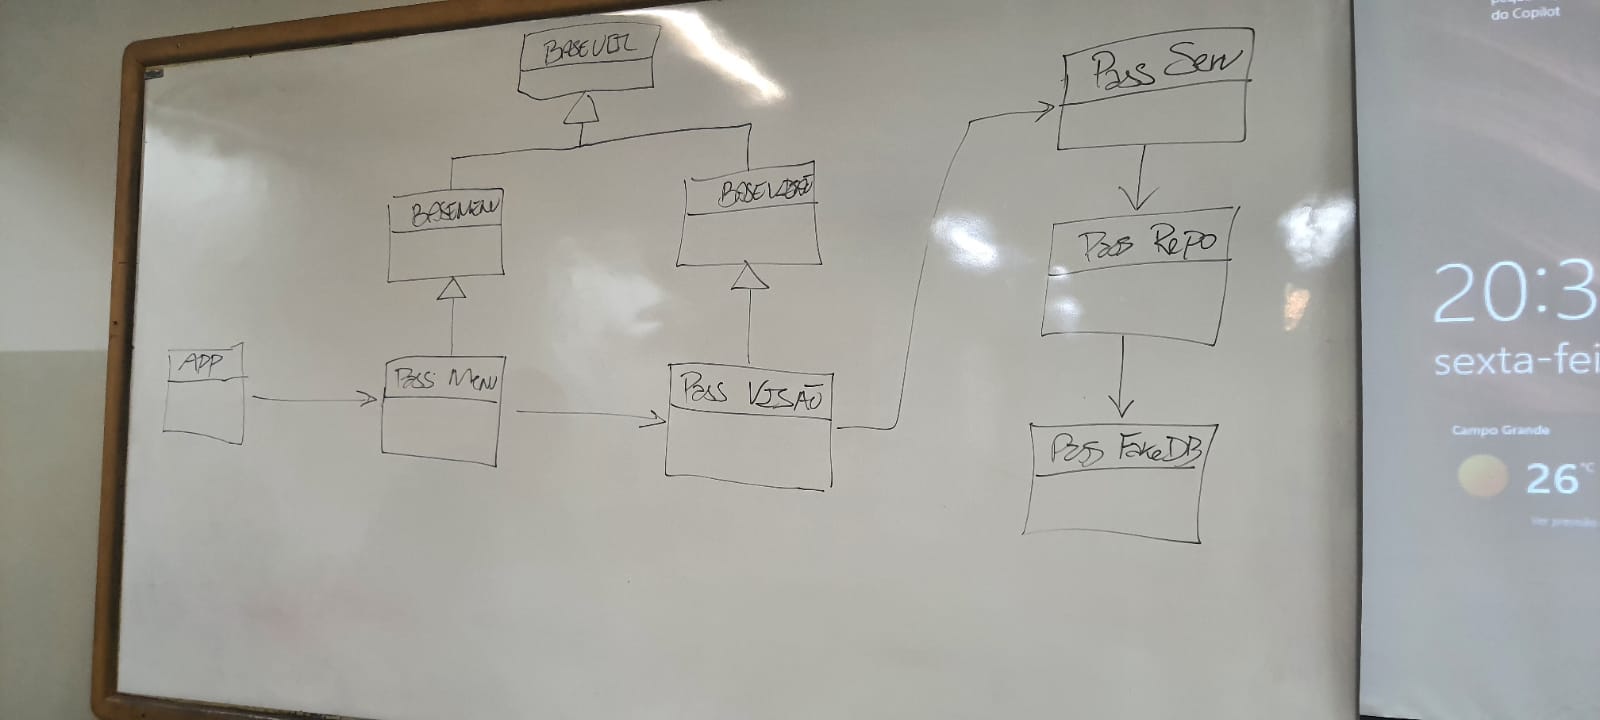 BASEUTIL
BASEMENU
BASEVISÃO
APP
Pass Menu
Pass VISÃO
Pass Serv
Pass Repo
Pass FakeDB
do Copilot
20:3
sexta-fei
Campo Grande
26°C
Ver previsão